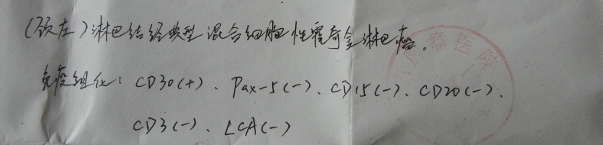 (颈左)淋巴结经典型混合细胞性霍奇金淋巴瘤。
免疫组化: CD30(+)、Pax-5(-)、CD15(-)、CD20(-)、
CD3(-)、LCA(-)
医院